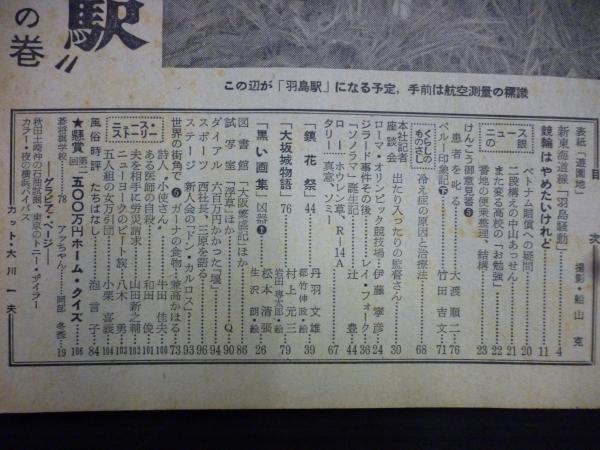 駅〟
の巻
この辺が「羽島駅」になる予定，手前は航空測量の標識
目 次
表紙「遊園地」 撮影・船山 克
新東海道線「羽島騒動」 4
競輪はやめたいけれど 11
ニュース眼
ニの
ベトナム賠償への疑問 20
二段構えの中山あっせん 21
また変る高校の「お勉強」 22
番地の便乗整理、結構 23
けんこう御意見番⑤
患者を叱る 大渡順二 76
ペルー印象記㊦ 竹田吉文 71
くらしの
ものさし
冷え症の原因と治療法 68
本社記者
座談会
出たり入ったりの監督さん 30
ローマ・オリンピック競技場 伊藤寧彦 24
ジラード事件その後 レイ・フォーク 36
「ソノラマ」誕生記 辻 豊 44
ロー ホウレン草、R-14A
タリー 真窓、ソミー 67
「鏡 花 祭」 丹羽文雄 39
都竹伸政・絵
「大坂城物語」76 村上元三 79
岩田専太郎・絵
「黒い画集」凶器① 松本清張 26
生沢 朗・絵
図書館 「大阪繁盛記」ほか 86
試写室 「浮草」ほか Q 90
ダイアル 六百万円かかった「堰」 94
スポーツ 西社長、三原を語る 96
ステージ 新人会の「ドン・カルロス」 93
世界の街角で⑥ ガーナの食物、兼高かほる 73
ニュース・
ストーリー
詩人・小使さん 牛田佳夫 100
ある医師の自殺 和田 俊 101
夫を相手に労災請求 山田新之輔 102
ニューヨークのビート族 八木 勇 103
五人組の女万引団 小栗喜義 104
風俗時評 たちばなし 泡 言子 84
★懸賞 第二回 五〇〇万円ホーム・クイズ 106
碁将棋学校 78 アァちゃん 岡部冬彦 19
―グラビア・ページ―
秋田土崎沖の石油試掘、東京のトニー・ザイラー
カラー・夜の横浜バイパス
カット・大川一夫